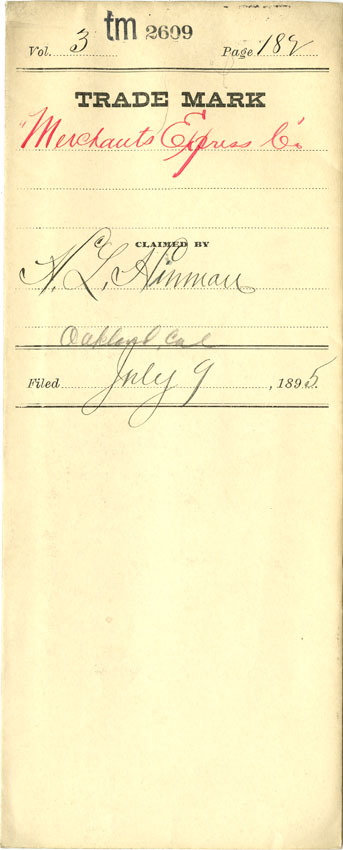 Vol. 3 tm 2609 Page 182
TRADE MARK
"Merchants Express Co.
CLAIMED BY
N. L. Hinman
Oakland Cal
Filed July 9, 1895.